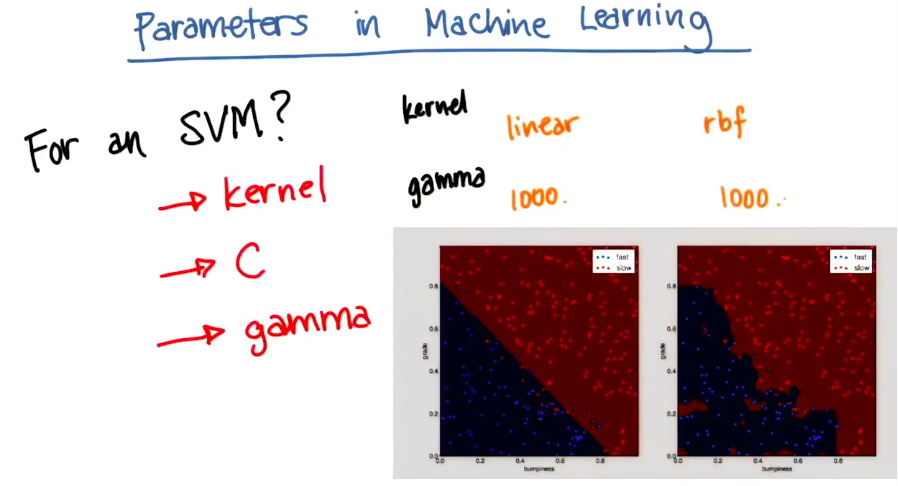 Parameters in Machine Learning
For an SVM?
→ kernel
→ C
→ gamma
kernel linear rbf
gamma 1000. 1000.
fast
slow
0.8
0.6
0.4
0.2
0.0
grade
0.0 0.2 0.4 0.6 0.8
bumpiness
fast
slow
0.8
0.6
0.4
0.2
0.0
grade
0.0 0.2 0.4 0.6 0.8
bumpiness